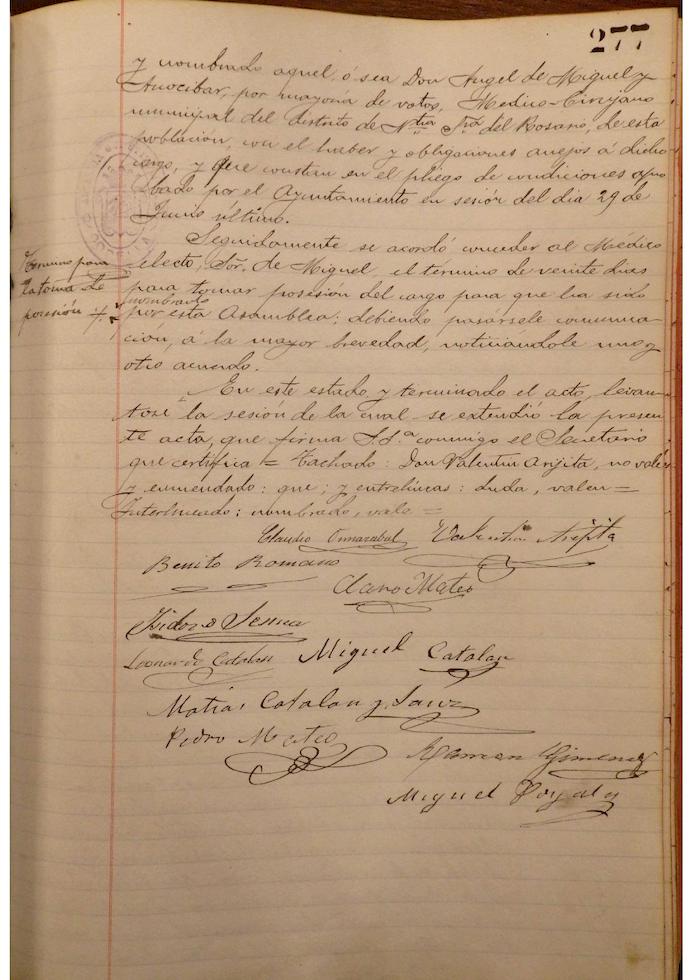 277
y nombrado aquel, ó sea Don Angel de Miguel y
Anocibar, por mayoria de votos, Medico-Cirujano
municipal del distrito de Ntra Sra del Rosario, de esta
población, con el haber y obligaciones anejos á dicho
cargo, y que constan en el pliego de condiciones apro
bado por el Ayuntamiento en sesión del dia 29 de
Junio último.
Seguidamente se acordó conceder al Médico
electo, Sor. de Miguel, el término de veinte dias
para tomar posesión del cargo para que ha sido
nombrado
por esta Asamblea; debiendo pasársele comunica-
ción, á la mayor brevedad, noticiándole uno y
otro acuerdo.
Termino para
la toma de
posesión
En este estado y terminado el acto, levan-
tose la sesión de la cual se extendió la presen
te acta, que firma S.Sª conmigo el Secretario
que certifica = Tachado: Don Valentin Arijita, no vale
y enmendado: que; y entrelineas: duda, valen =
Interlineado: nombrado, vale =
Claudio Valentin Arijita
Benito Romano
Claro Mateo
Isidoro Sesma
Leonardo Catalan Miguel Catalan
Matias Catalan y Sanz
Pedro Mateo
Ramon Gimenez
Miguel